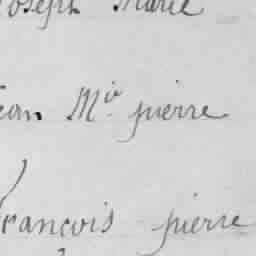 Joseph Marie
Jean Mie pierre
françois pierre